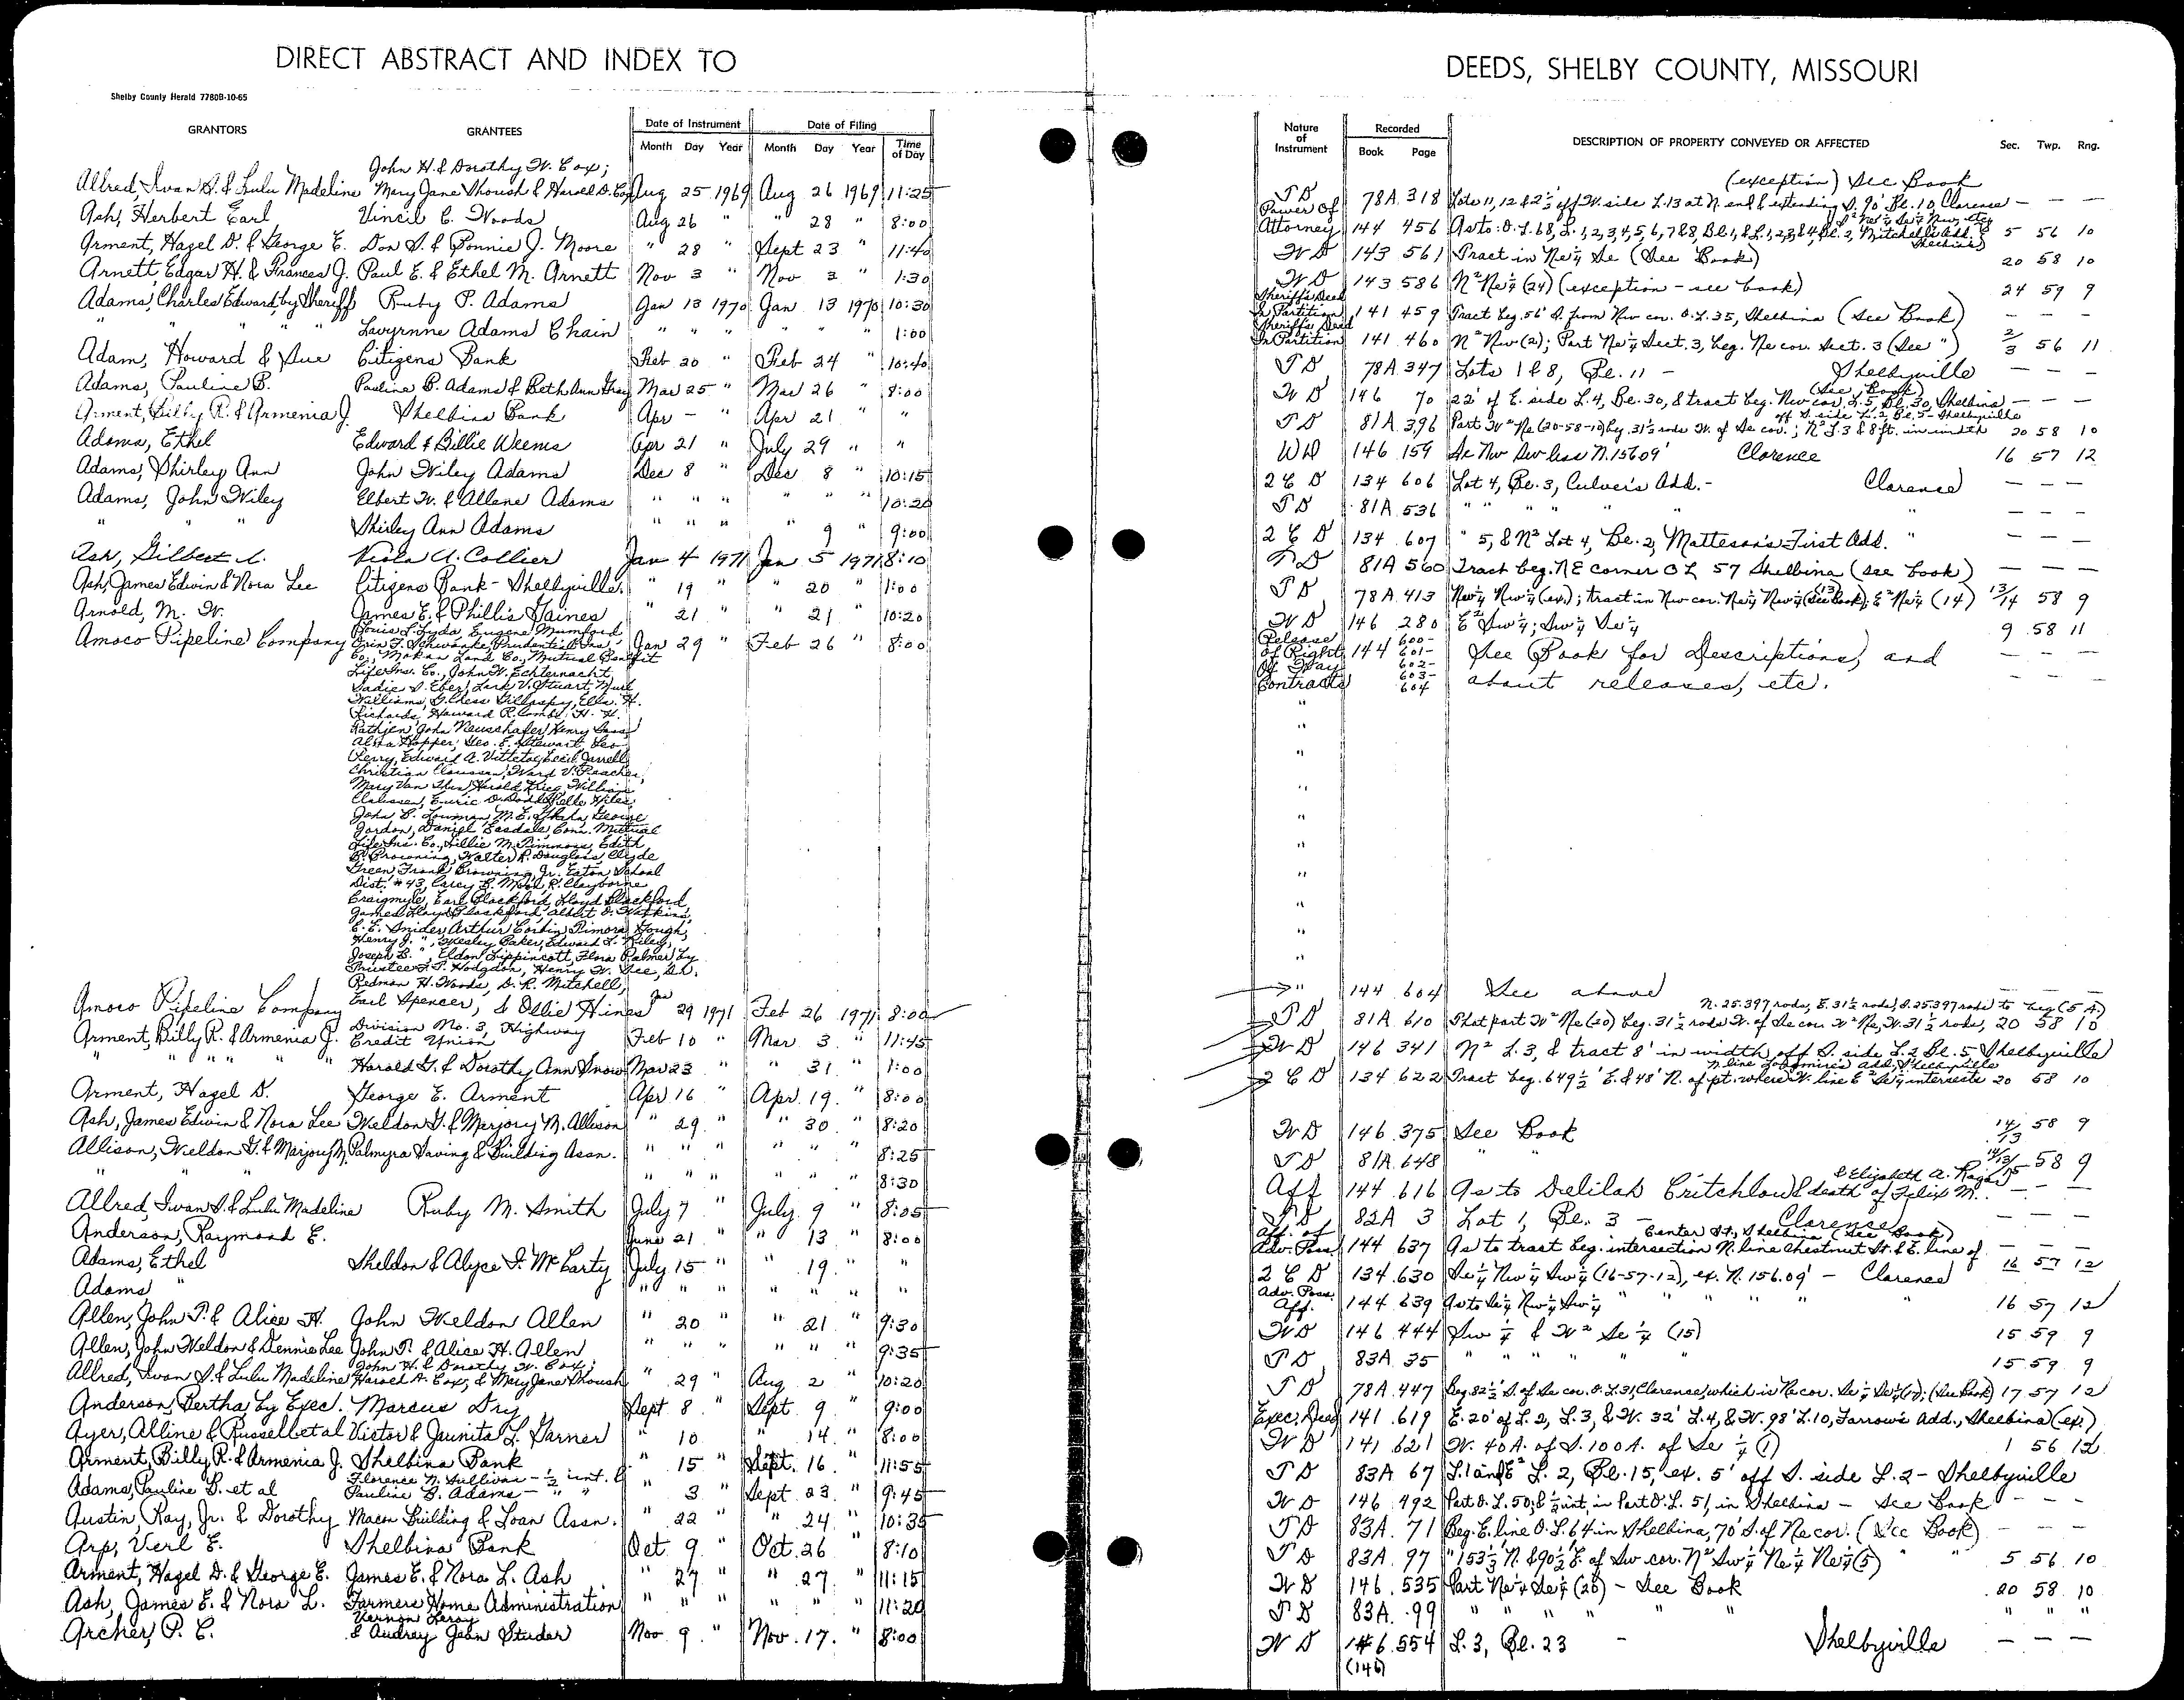 DIRECT ABSTRACT AND INDEX TO
Shelby County Herald 7780B-10-65
GRANTORS GRANTEES Date of Instrument Date of Filing
Month Day Year Month Day Year Time of Day
John H. & Dorothy W. Cox;
Allred, Ivan S. & Lulu Madeline Mary Jane Shoush & Harold D. Cox Aug 25 1969 Aug 26 1969 11:25
Ash, Herbert Earl Vincil C. Woods Aug 26 " " 28 " 8:00
Arment, Hazel D. & George E. Don S. & Bonnie J. Moore " 28 " Sept 23 " 11:40
Arnett, Edgar H. & Frances J. Paul E. & Ethel M. Arnett Nov 3 " Nov 3 " 1:30
Adams, Charles Edward, by Sheriff Ruby P. Adams Jan 13 1970 Jan 13 1970 10:30
" " " " Lavyrnne Adams Chain " " " " " " 1:00
Adam, Howard & Sue Citizens Bank Feb 20 " Feb 24 " 10:40
Adams, Pauline B. Pauline B. Adams & Beth Ann Gray Mar 25 " Mar 26 " 8:00
Arment, Billy R. & Armenia J. Shelbina Bank Apr - " Apr 21 " "
Adams, Ethel Edward & Billie Weems Apr 21 " July 29 " "
Adams, Shirley Ann John Wiley Adams Dec 8 " Dec 8 " 10:15
Adams, John Wiley Elbert W. & Allene Adams " " " " " " 10:20
" " Shirley Ann Adams " " " " 9 " 9:00
Ash, Gilbert L. Viola A. Collier Jan 4 1971 Jan 5 1971 8:10
Ash, James Edwin & Nora Lee Citizens Bank - Shelbyville " 19 " " 20 " 1:00
Arnold, M. W. James E. & Phillis Gaines " 21 " " 21 " 10:20
Louis L. Fyda, Eugene Mumford
Amoco Pipeline Company Orin F. Schwanke, Prudential Ins. Jan 29 " Feb 26 " 8:00
Co., Mokan Land Co., Mutual Benefit
Life Ins. Co., John W. Echternacht,
Sadie S. Eber, Lark V. Stuart,
Williams, Gillaspy, Ella H.
Richards, Howard R. Combs, H. H.
Rathjen, John Neuschafer, Henry
Alta Hopper, Geo. E. Stewart, Leo
Perry, Edward A. Vittetoe, Cecil Jarrell
Christian Claussen, Ward V. Peacher,
Mary Van Thun, Harold Krieg, William
Claussen, Euric D. Dodd, Belle Wiles,
John B. Lowman, M. E. George
Jordon, Daniel Easdale, Conn. Mutual
Life Ins. Co., Lillie M. Timmons, Edith
B. Browning, Walter R. Douglass, Clyde
Green, Frank Browning, Jr. Eaton School
Dist. # 43, Carey B. R. Clayborne
Craigmyle, Earl Blackford, Lloyd Blackford,
James Lloyd Blackford, Albert O. Watkins,
E. E. Snider, Arthur Corbin, Pimora Gough,
Henry J. ", Wesley Baker, Edward L. Riley,
Joseph B. ", Eldon Lippincott, Flora Palmer, by
Trustee J. T. Hodgdon, Henry W. See, Sr.
Redman H. Woods, D. R. Mitchell,
Amoco Pipeline Company Earl Spencer, & Ollie Hines Jan 29 1971 Feb 26 1971 8:00
Arment, Billy R. & Armenia J. Division No. 3, Highway Credit Union Feb 10 " Mar 3 " 11:45
" " " " " Harold G. & Dorothy Ann Snow Mar 23 " " 31 " 1:00
Arment, Hazel D. George E. Arment Apr 16 " Apr. 19 " 8:00
Ash, James Edwin & Nora Lee Weldon G. & Marjory M. Allison " 29 " " 30 " 8:20
Allison, Weldon G. & Marjory M. Palmyra Saving & Building Assn. " " " " " " 8:25
" " " " " " " 8:30
Allred, Ivan S. & Lulu Madeline Ruby M. Smith July 7 " July 9 " 8:05
Anderson, Raymond E. June 21 " " 13 " 8:00
Adams, Ethel Sheldon & Alyce F. McCarty July 15 " " 19 " "
Adams, " " " " " " " "
Allen, John T. & Alice H. John Weldon Allen " 20 " " 21 " 9:30
Allen, John Weldon & Dennie Lee John T. & Alice H. Allen " " " " " " 9:35
John H. & Dorothy W. Cox;
Allred, Ivan S. & Lulu Madeline Harold D. Cox; & Mary Jane Shoush " 29 " Aug 2 " 10:20
Anderson, Bertha by Exec. Marcus Dry Sept 8 " Sept 9 " 9:00
Ayer, Alline & Russell et al Victor & Jaunita L. Garner " 10 " 14 " 8:00
Arment, Billy R. & Armenia J. Shelbina Bank " 15 " Sept. 16 " 11:55
Florence N. Sullivan - 1/2 int. &
Adams, Pauline B. et al Pauline B. Adams - " " " 3 " Sept 23 " 9:45
Austin, Ray, Jr. & Dorothy Macon Building & Loan Assn. " 22 " " 24 " 10:35
Arp, Verl E. Shelbina Bank Oct. 9 " Oct. 26 " 8:10
Arment, Hazel D. & George E. James E. & Nora L. Ash " 27 " " 27 " 11:15
Ash, James E. & Nora L. Farmers Home Administration " " " " " " 11:20
Vernon Leroy
Archer, P. C. & Audrey Jean Studer Nov 9 " Nov. 17 " 8:00
DEEDS, SHELBY COUNTY, MISSOURI
Nature of Instrument Recorded Book Page DESCRIPTION OF PROPERTY CONVEYED OR AFFECTED Sec. Twp. Rng.
(exception) See Book
T D 78A 318 Lots 11, 12 & 2 1/2' off W. side L. 13 at N. end & extending S. 90' Bl. 10, Clarence - — —
Power of Attorney 144 456 As to: O. L. 68, L. 1,2,3,4,5,6,7&8, Bl. 1, & L. 1,2,3&4, Bl. 2, Mitchell's Add. Shelbina 5 56 10
W D 143 561 Tract in Ne 1/4 Se (See Book) 20 58 10
W D 143 586 N² Ne 1/4 (24) (exception - see book) 24 59 9
Sheriff's Deed In Partition 141 459 Tract beg. 56' S. from Nw cor. O. L. 35, Shelbina (See Book) — — —
Sheriff's Deed In Partition 141 460 N² Nw (2); Part Ne 1/4 Sect. 3, beg. Ne cor. Sect. 3 (See ") 2/3 56 11
T D 78A 347 Lots 1 & 8, Bl. 11 - Shelbyville — — —
(See Book)
W D 146 70 22' of E. side L. 4, Bl. 30, & tract beg. Nw cor. L. 5, Bl. 30, Shelbina — — —
off S. side L. 2, Bl. 5 - Shelbyville
T D 81A 396 Part W² Ne (20-58-10) beg. 31 1/2 rods W. of Se cor.; N² L. 3 & 8 ft. in width 20 58 10
WD 146 159 Se Nw Sw less N. 156.09' Clarence 16 57 12
2 C D 134 606 Lot 4, Bl. 3, Culver's Add. - Clarence — — —
T D 81A 536 " " " " " " — — —
2 C D 134 607 " 5, & N² Lot 4, Bl. 2, Matteson's First Add. " — — —
T D 81A 560 Tract beg. NE corner O L 57 Shelbina (see book) — — —
T D 78A 413 Nw 1/4 Nw 1/4 (ex.); tract in Nw cor. Ne 1/4 Nw 1/4 (13) (See Book); E² Ne 1/4 (14) 13/14 58 9
W D 146 280 E² Sw 1/4; Sw 1/4 Se 1/4 9 58 11
Release of Right Of Way Contracts 144 600- 601- 602- 603- 604 See Book for Descriptions, and about releases, etc. — — —
"
"
"
"
"
"
"
"
"
"
" 144 604 See above
N. 25.397 rods, E. 31 1/2 rods, S. 25.397 rods to beg (5 A.)
T D 81A 610 That part W² Ne (20) beg. 31 1/2 rods W. of Se cor. W² Ne, W. 31 1/2 rods, 20 58 10
W D 146 341 N² L. 3, & tract 8' in width off S. side L. 2 Bl. 5, Shelbyville
2 C D 134 622 Tract beg. 649 1/2' E. & 48' N. of pt. where W. line E² Se 1/4 intersects 20 58 10
W D 146 375 See Book 14/13 58 9
T D 81A 648 " " 14/13/15 58 9
& Elizabeth A. Ragar
Aff 144 616 As to Delilah Critchlow & death of Felix M. — — —
T D 82A 3 Lot 1, Bl. 3 - Clarence — — —
Center St., Shelbina (See Book)
Aff. of Adv. Poss. 144 637 As to tract beg. intersection N. line Chestnut St. & E. line of — — —
2 C D 134 630 Se 1/4 Nw 1/4 Sw 1/4 (16-57-12), ex. N. 156.09' - Clarence 16 57 12
Adv. Poss. Aff. 144 639 As to Se 1/4 Nw 1/4 Sw 1/4 " " " " 16 57 12
W D 146 444 Sw 1/4 & W² Se 1/4 (15) 15 59 9
T D 83A 35 " " " " " 15 59 9
T D 78A 447 Beg. 82 1/2' S. of Se cor. O. L. 31, Clarence, which is Ne cor. Se 1/4 Se 1/4 (17); (See Book) 17 57 12
Exec. Deed 141 619 E. 20' of L. 2, L. 3, & W. 32' L. 4, & W. 98' L. 10, Farrow's Add., Shelbina (ex.)
W D 141 621 W. 40 A. of S. 100 A. of Se 1/4 (1) 1 56 12
T D 83A 67 L. 1 and E² L. 2, Bl. 15, ex. 5' off S. side L. 2 - Shelbyville
W D 146 492 Part O. L. 50; & 1/2 int. in Part O. L. 51, in Shelbina - See Book — — —
T D 83A 71 Beg. E. line O. L. 64 in Shelbina, 70' S. of Ne cor. (See Book) — — —
T D 83A 97 " 153 1/3' N. & 90 1/2' E. of Sw cor. N² Sw 1/4 Ne 1/4 Ne 1/4 (5) " " 5 56 10
W D 146 535 Part Ne 1/4 Se 1/4 (20) - See Book 20 58 10
T D 83A 99 " " " " " " " "
W D 146 554 L. 3, Bl. 23 - Shelbyville — — —
(146)